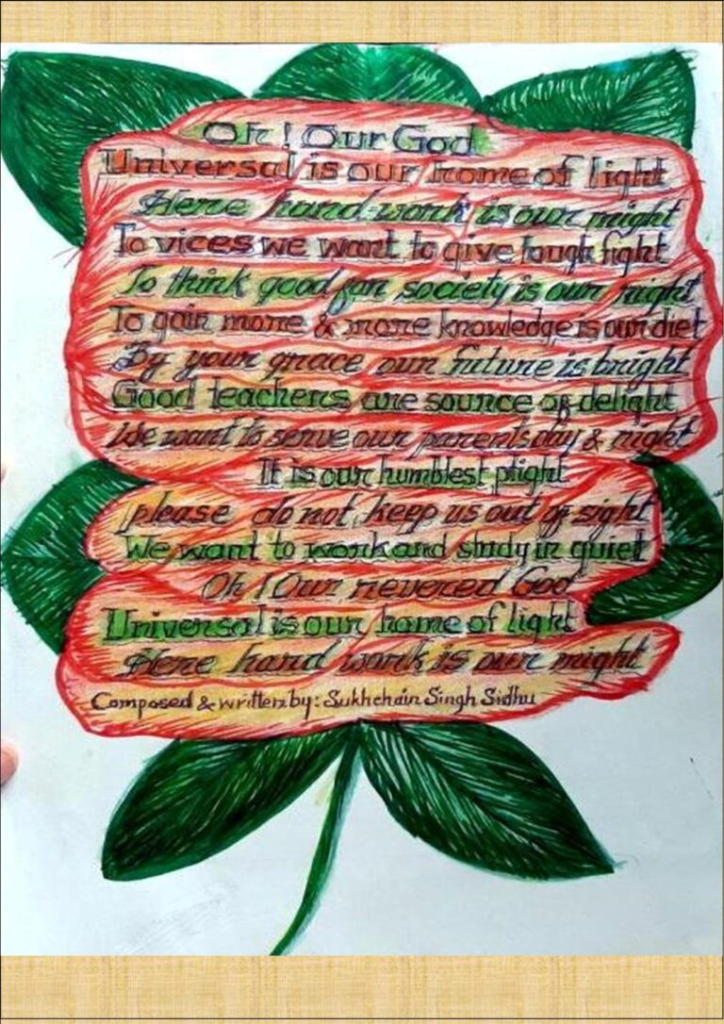 Oh! Our God
Universal is our home of light
Here hand-work is our might
To vices we want to give tough fight
To think good for society is our right
To gain more & more knowledge is our diet
By your grace our future is bright
Good teachers are source of delight
We want to serve our parents day & night
It is our humblest plight
please do not keep us out of sight
We want to work and study in quiet
Oh! Our revered God
Universal is our home of light
Here hand work is our might
Composed & written by: Sukhchain Singh Sidhu